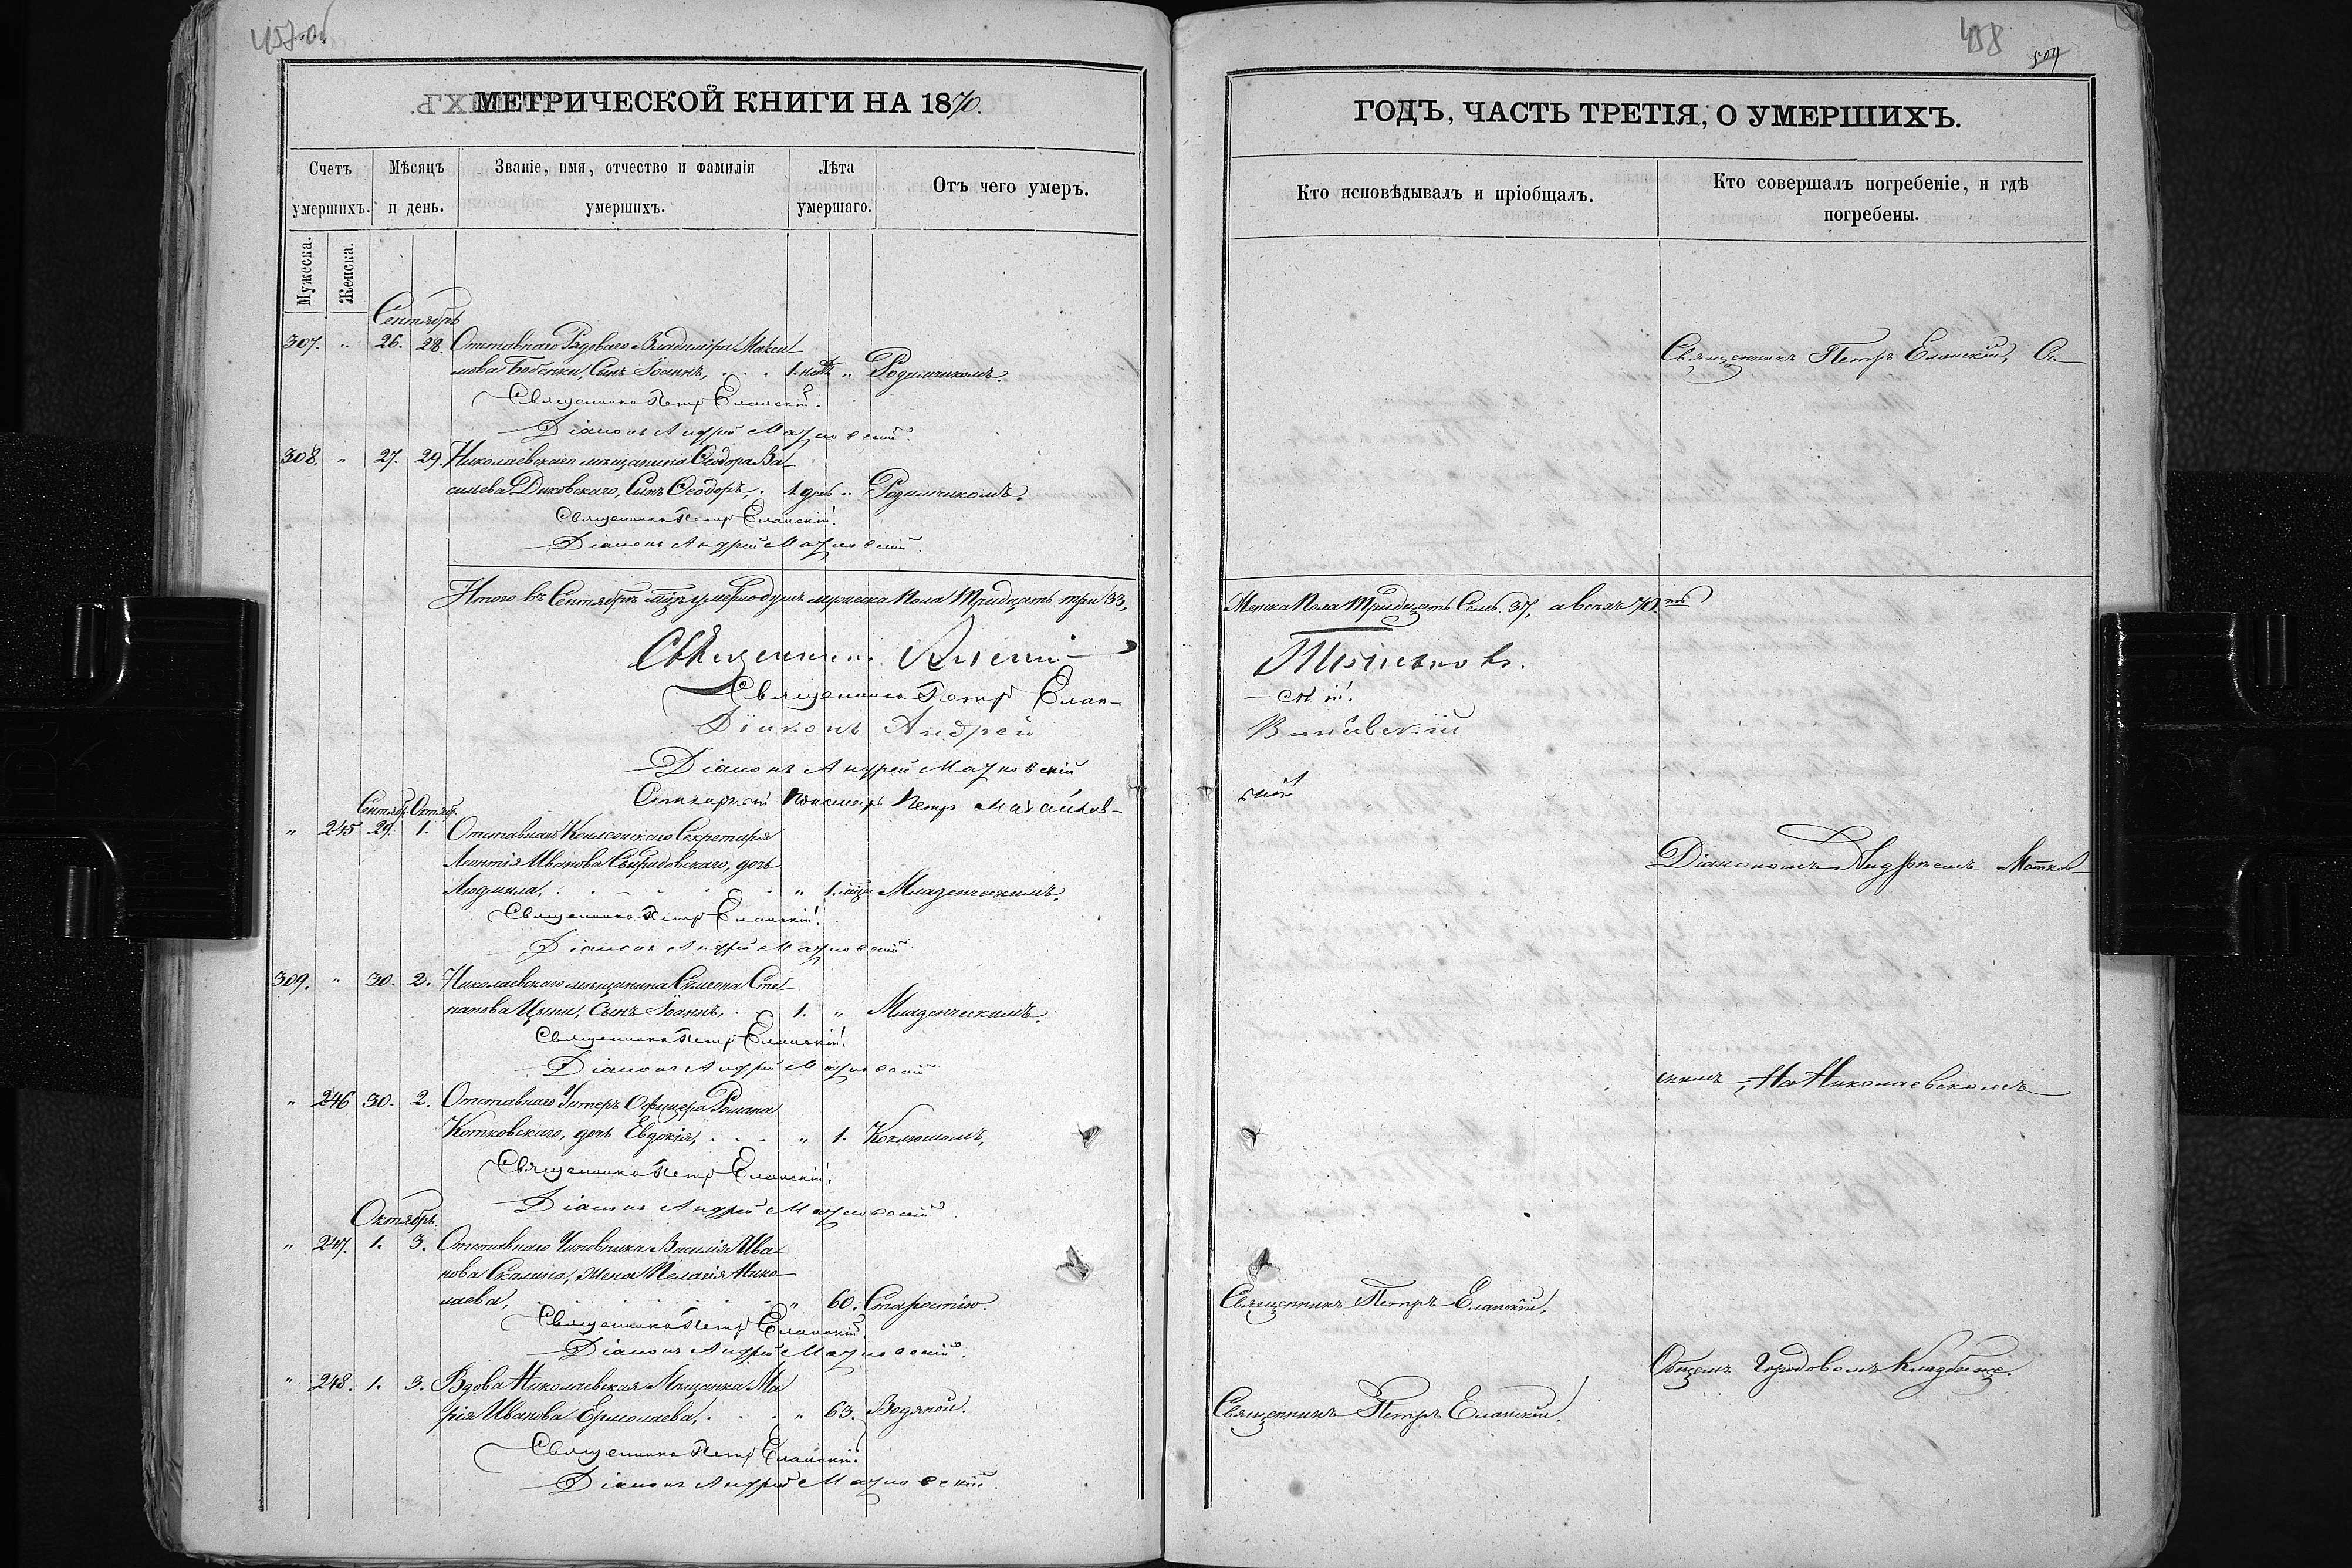 457об
МЕТРИЧЕСКОЙ КНИГИ НА 1870.
Счетъ умершихъ.
Мѣсяцъ и день.
Званіе, имя, отчество и фамилія умершихъ.
Лѣта умершаго.
Отъ чего умеръ.
Мужеска.
Женска.
Сентябрь
307. " 26. 28. Отставнаго Рядоваго Владиміра Макси-
мова Бобенки, Сынъ Іоаннъ, 1. нед. " Родимчикомъ.
Священникъ Петръ Еланскій.
Діаконъ Андрей Матковскій.
308. " 27. 29. Николаевскаго мѣщанина Ѳеодора Ва-
сильева Диковскаго, Сынъ Ѳеодоръ, 1 день " Родимчикомъ.
Священникъ Петръ Еланскій.
Діаконъ Андрей Матковскій.
Итого въ Сентябрѣ мцѣ умерло душъ мужеска пола тридцать три 33,
Священникъ
Священникъ Петръ Елан-
Діаконъ Андрей
Діаконъ Андрей Матковскій
Пономарь Петръ
Сентябр. Октяб.
" 245 29. 1. Отставнаго Коллежскаго Секретаря
Леонтія Иванова Свиридовскаго, дочь
Людмила, " 1. мца Младенческимъ.
Священникъ Петръ Еланскій.
Діаконъ Андрей Матковскій
309. " 30. 2. Николаевскаго мѣщанина Симеона Сте-
панова Цыпи, Сынъ Іоаннъ, 1. " Младенческимъ.
Священникъ Петръ Еланскій.
Діаконъ Андрей Матковскій
" 246 30. 2. Отставнаго Унтеръ Офицера Романа
Котковскаго, дочь Евдокія, " 1. Коклюшомъ,
Священникъ Петръ Еланскій.
Діаконъ Андрей Матковскій
Октябрь.
" 247. 1. 3. Отставнаго Чиновника Василія Ива-
нова Скалина, Жена Пелагія Нико-
лаева, " 60. Старостію.
Священникъ Петръ Еланскій.
Діаконъ Андрей Матковскій.
" 248. 1. 3. Вдова Николаевская Мѣщанка Ма-
рія Иванова Ермолаева, " 63. Водяной.
Священникъ Петръ Еланскій.
Діаконъ Андрей Матковскій.
458
509
ГОДЪ, ЧАСТЬ ТРЕТІЯ, О УМЕРШИХЪ.
Кто исповѣдывалъ и пріобщалъ.
Кто совершалъ погребеніе, и гдѣ погребены.
Священникъ Петръ Еланскій, Съ
Женска Пола тридцать Семь. 37, а всѣхъ 70.
скій.
скій
Діакономъ Андреемъ Матков-
скимъ, На Николаевскомъ
Священникъ Петръ Еланскій.
Общемъ Городовомъ Кладбище.
Священникъ Петръ Еланскій.